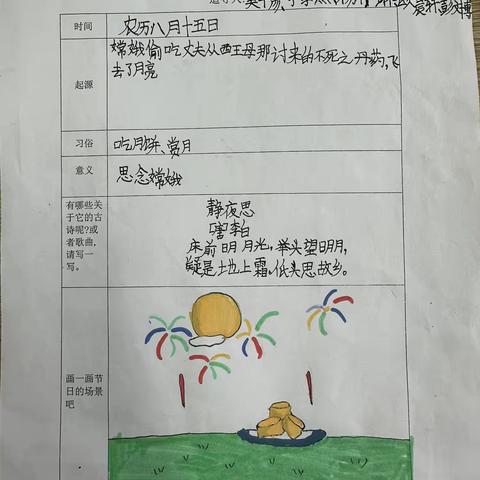 时间
农历八月十五日
起源
嫦娥偷吃丈夫从西王母那讨来的不死之丹药,飞
去了月亮
习俗
吃月饼、赏月
意义
思念嫦娥
有哪些关
于它的古
诗呢?或
者歌曲,
请写一
写。
静夜思
唐 李白
床前明月光,举头望明月,
疑是土地上霜。低头思故乡。
画一画节
日的场景
吧